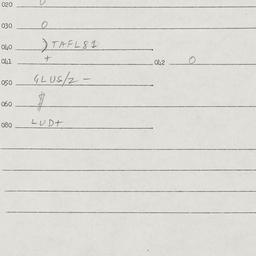 020 0
030 0
040 )TAFL81
041 + 042 0
050 GLUS/Z -
060
080 LUD+